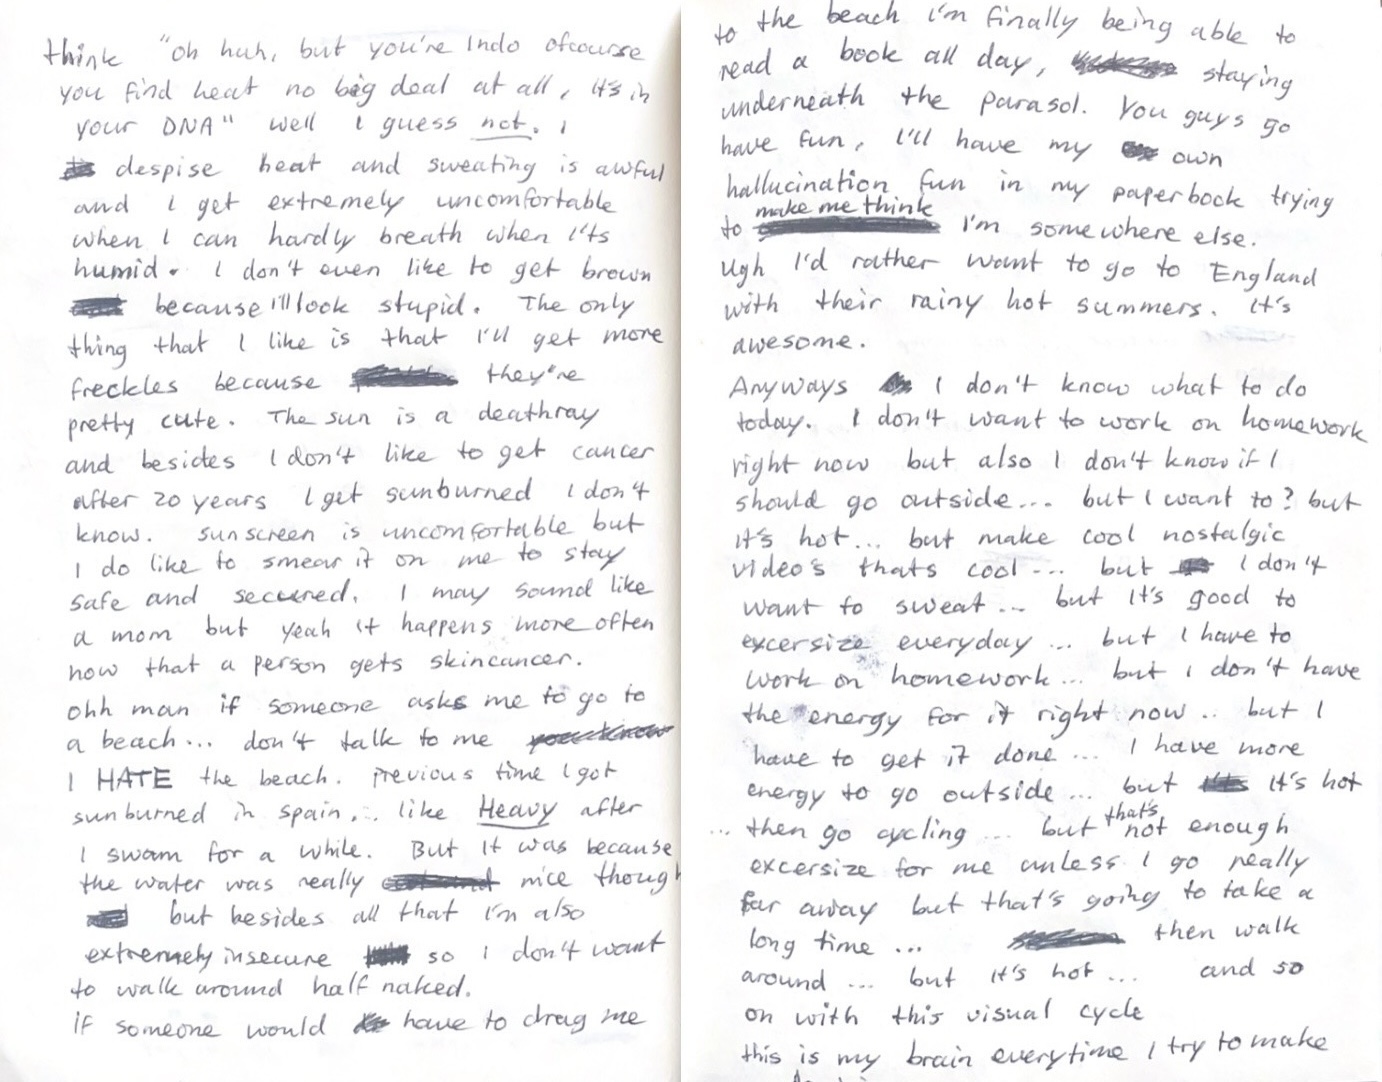 think "oh huh, but you're Indo ofcourse
you find heat no big deal at all, it's in
your DNA" well I guess not. I
despise heat and sweating is awful
and I get extremely uncomfortable
when I can hardly breath when I'ts
humid. I don't even like to get brown
because i'll look stupid. The only
thing that I like is that I'll get more
freckles because they're
pretty cute. The sun is a deathray
and besides I don't like to get cancer
after 20 years I get sunburned I don't
know. sunscreen is uncomfortable but
I do like to smear it on me to stay
safe and secured. I may sound like
a mom but yeah it happens more often
now that a person gets skincancer.
ohh man if someone asks me to go to
a beach... don't talk to me you know
I HATE the beach. previous time I got
sunburned in spain... like Heavy after
I swam for a while. But it was because
the water was really nice though
but besides all that I'm also
extremely insecure so I don't want
to walk around half naked.
if someone would have to drag me
to the beach i'm finally being able to
read a book all day, staying
underneath the parasol. You guys go
have fun, I'll have my own
hallucination fun in my paperbook trying
to make me think I'm somewhere else.
Ugh I'd rather want to go to England
with their rainy hot summers. It's
awesome.
Anyways I don't know what to do
today. I don't want to work on homework
right now but also I don't know if I
should go outside... but I want to? but
it's hot... but make cool nostalgic
video's thats cool... but I don't
want to sweat... but it's good to
excersize everyday... but I have to
work on homework... but I don't have
the energy for it right now.. but I
have to get it done... I have more
energy to go outside... but it's hot
... then go cycling ... but that's not enough
excersize for me unless I go really
far away but that's going to take a
long time ... then walk
around... but it's hot... and so
on with this visual cycle
this is my brain everytime I try to make